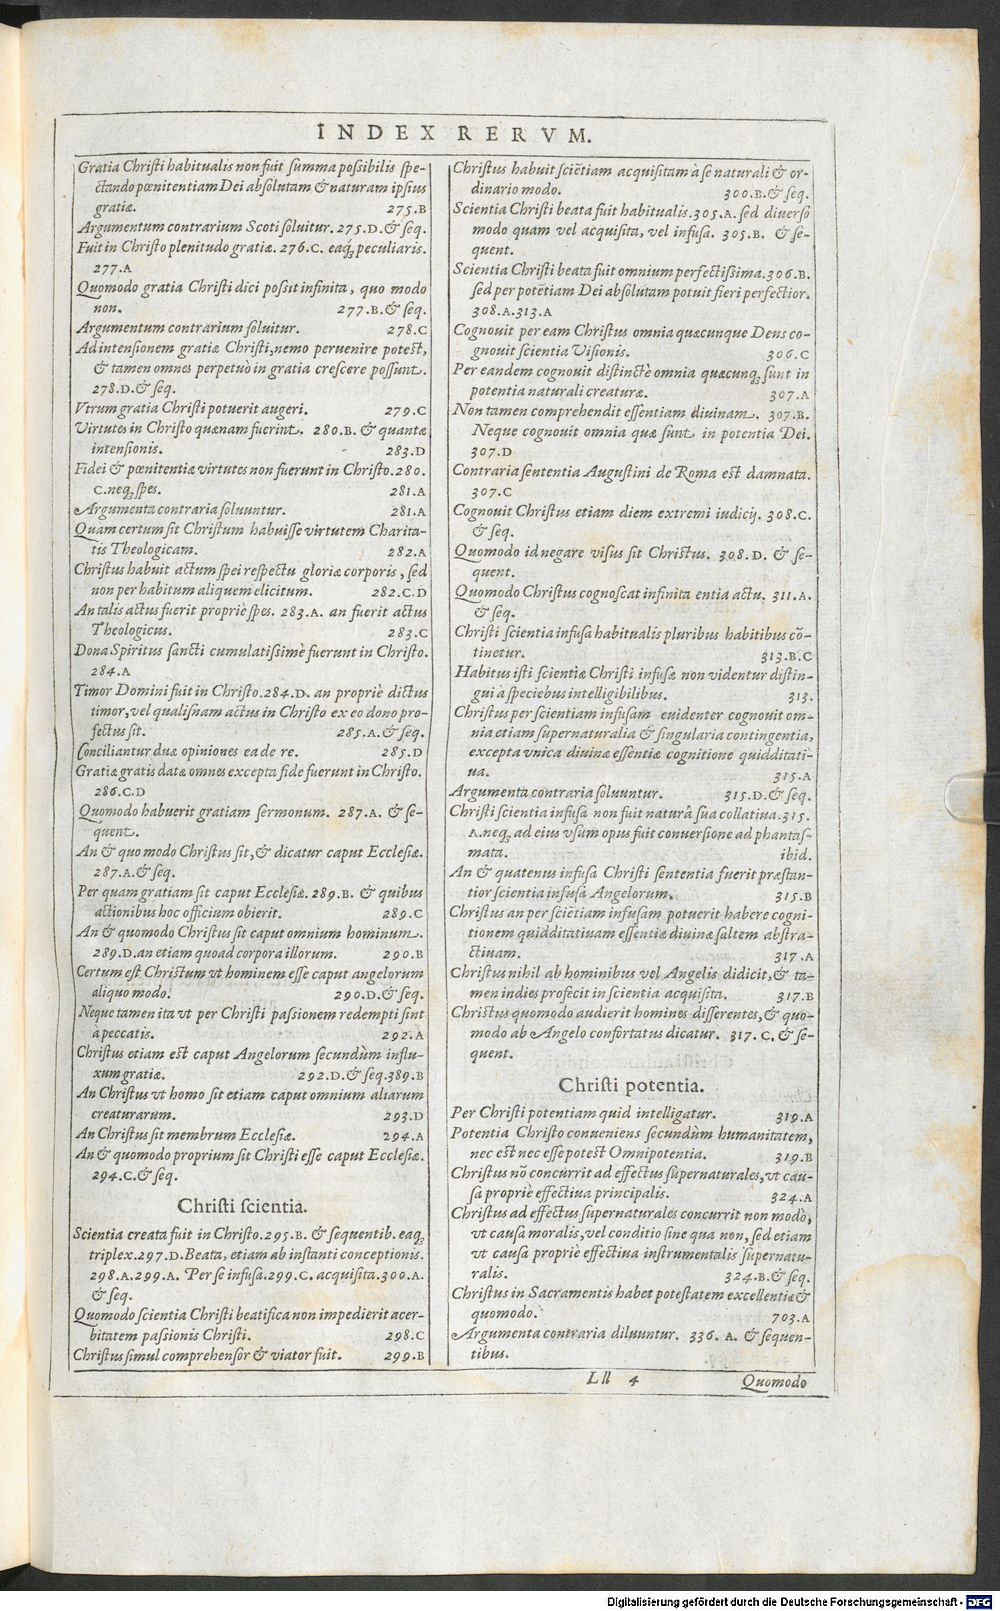 INDEX RERVM.
Gratia Christi habitualis non fuit summa possibilis spe-
ctando pœnitentiam Dei absolutam & naturam ipsius
gratiæ. 275.B
Argumentum contrarium Scoti soluitur. 275.D.& seq.
Fuit in Christo plenitudo gratiæ. 276.C. eaq́; peculiaris.
277.A
Quomodo gratia Christi dici possit infinita, quo modo
non. 277.B.& seq.
Argumentum contrarium soluitur. 278.C
Ad intensionem gratiæ Christi, nemo peruenire potest,
& tamen omnes perpetuò in gratia crescere possunt.
278.D.& seq.
Vtrum gratia Christi potuerit augeri. 279.C
Virtutes in Christo quænam fuerint. 280.B. & quantæ
intensionis. 283.D
Fidei & pœnitentiæ virtutes non fuerunt in Christo. 280.
C. neq; spes. 281.A
Argumenta contraria soluuntur. 281.A
Quam certum sit Christum habuisse virtutem Charita-
tis Theologicam. 282.A
Christus habuit actum spei respectu gloriæ corporis, sed
non per habitum aliquem elicitum. 282.C.D
An talis actus fuerit propriè spes. 283.A. an fuerit actus
Theologicus. 283.C
Dona Spiritus sancti cumulatissimè fuerunt in Christo.
284.A
Timor Domini fuit in Christo. 284.D. an propriè dictus
timor, vel qualisnam actus in Christo ex eo dono pro-
fectus sit. 285.A.& seq.
Conciliantur duæ opiniones ea de re. 285.D
Gratiæ gratis datæ omnes excepta fide fuerunt in Christo.
286.C.D
Quomodo habuerit gratiam sermonum. 287.A. & se-
quent.
An & quo modo Christus sit, & dicatur caput Ecclesiæ.
287.A.& seq.
Per quam gratiam sit caput Ecclesiæ. 289.B. & quibus
actionibus hoc officium obierit. 289.C
An & quomodo Christus sit caput omnium hominum.
289.D. an etiam quoad corpora illorum. 290.B
Certum est Christum vt hominem esse caput angelorum
aliquo modo. 290.D.& seq.
Neque tamen ita vt per Christi passionem redempti sint
à peccatis. 292.A
Christus etiam est caput Angelorum secundùm influ-
xum gratiæ. 292.D.& seq. 389.B
An Christus vt homo sit etiam caput omnium aliarum
creaturarum. 293.D
An Christus sit membrum Ecclesiæ. 294.A
An & quomodo proprium sit Christi esse caput Ecclesiæ.
294.C.& seq.
Christi scientia.
Scientia creata fuit in Christo. 295.B. & sequentib. eaq́;
triplex. 297.D. Beata, etiam ab instanti conceptionis.
298.A. 299.A. Per se infusa. 299.C. acquisita. 300.A.
& seq.
Quomodo scientia Christi beatifica non impedierit acer-
bitatem passionis Christi. 298.C
Christus simul comprehensor & viator fuit. 299.B
Christus habuit sciẽtiam acquisitam à se naturali & or-
dinario modo. 300.B.& seq.
Scientia Christi beata fuit habitualis. 305.A. sed diuerso
modo quam vel acquisita, vel infusa. 305.B. & se-
quent.
Scientia Christi beata fuit omnium perfectissima. 306.B.
sed per potẽtiam Dei absolutam potuit fieri perfectior.
308.A. 313.A
Cognouit per eam Christus omnia quæcunque Deus co-
gnouit scientia Visionis. 306.C
Per eandem cognouit distinctè omnia quæcunq; sunt in
potentia naturali creaturæ. 307.A
Non tamen comprehendit essentiam diuinam. 307.B.
Neque cognouit omnia quæ sunt in potentia Dei.
307.D
Contraria sententia Augustini de Roma est damnata.
307.C
Cognouit Christus etiam diem extremi iudicij. 308.C.
& seq.
Quomodo id negare visus sit Christus. 308.D. & se-
quent.
Quomodo Christus cognoscat infinita entia actu. 311.A.
& seq.
Christi scientia infusa habitualis pluribus habitibus cõ-
tinetur. 313.B.C
Habitus isti scientiæ Christi infusæ non videntur distin-
gui à speciebus intelligibilibus. 313.
Christus per scientiam infusam euidenter cognouit om-
nia etiam supernaturalia & singularia contingentia,
excepta vnica diuinæ essentiæ cognitione quidditati-
ua. 315.A
Argumenta contraria soluuntur. 315.D.& seq.
Christi scientia infusa non fuit naturâ sua collatiua. 315.
A. neq; ad eius vsum opus fuit conuersione ad phantas-
mata. ibid.
An & quatenus infusa Christi sententia fuerit præstan-
tior scientia infusa Angelorum. 315.B
Christus an per sciẽtiam infusam potuerit habere cogni-
tionem quidditatiuam essentiæ diuinæ saltem abstra-
ctiuam. 317.A
Christus nihil ab hominibus vel Angelis didicit, & ta-
men indies profecit in scientia acquisita. 317.B
Christus quomodo audierit homines disserentes, & quo-
modo ab Angelo confortatus dicatur. 317. C. & se-
quent.
Christi potentia.
Per Christi potentiam quid intelligatur. 319.A
Potentia Christo conueniens secundùm humanitatem,
nec est nec esse potest Omnipotentia. 319.B
Christus nõ concurrit ad effectus supernaturales, vt cau-
sa propriè effectiua principalis. 324.A
Christus ad effectus supernaturales concurrit non modò,
vt causa moralis, vel conditio sine qua non, sed etiam
vt causa propriè effectiua instrumentalis supernatu-
ralis. 324.B.& seq.
Christus in Sacramentis habet potestatem excellentiæ &
quomodo. 703.A
Argumenta contraria diluuntur. 336. A. & sequen-
tibus.
Lll 4 Quomodo
Digitalisierung gefördert durch die Deutsche Forschungsgemeinschaft - DFG